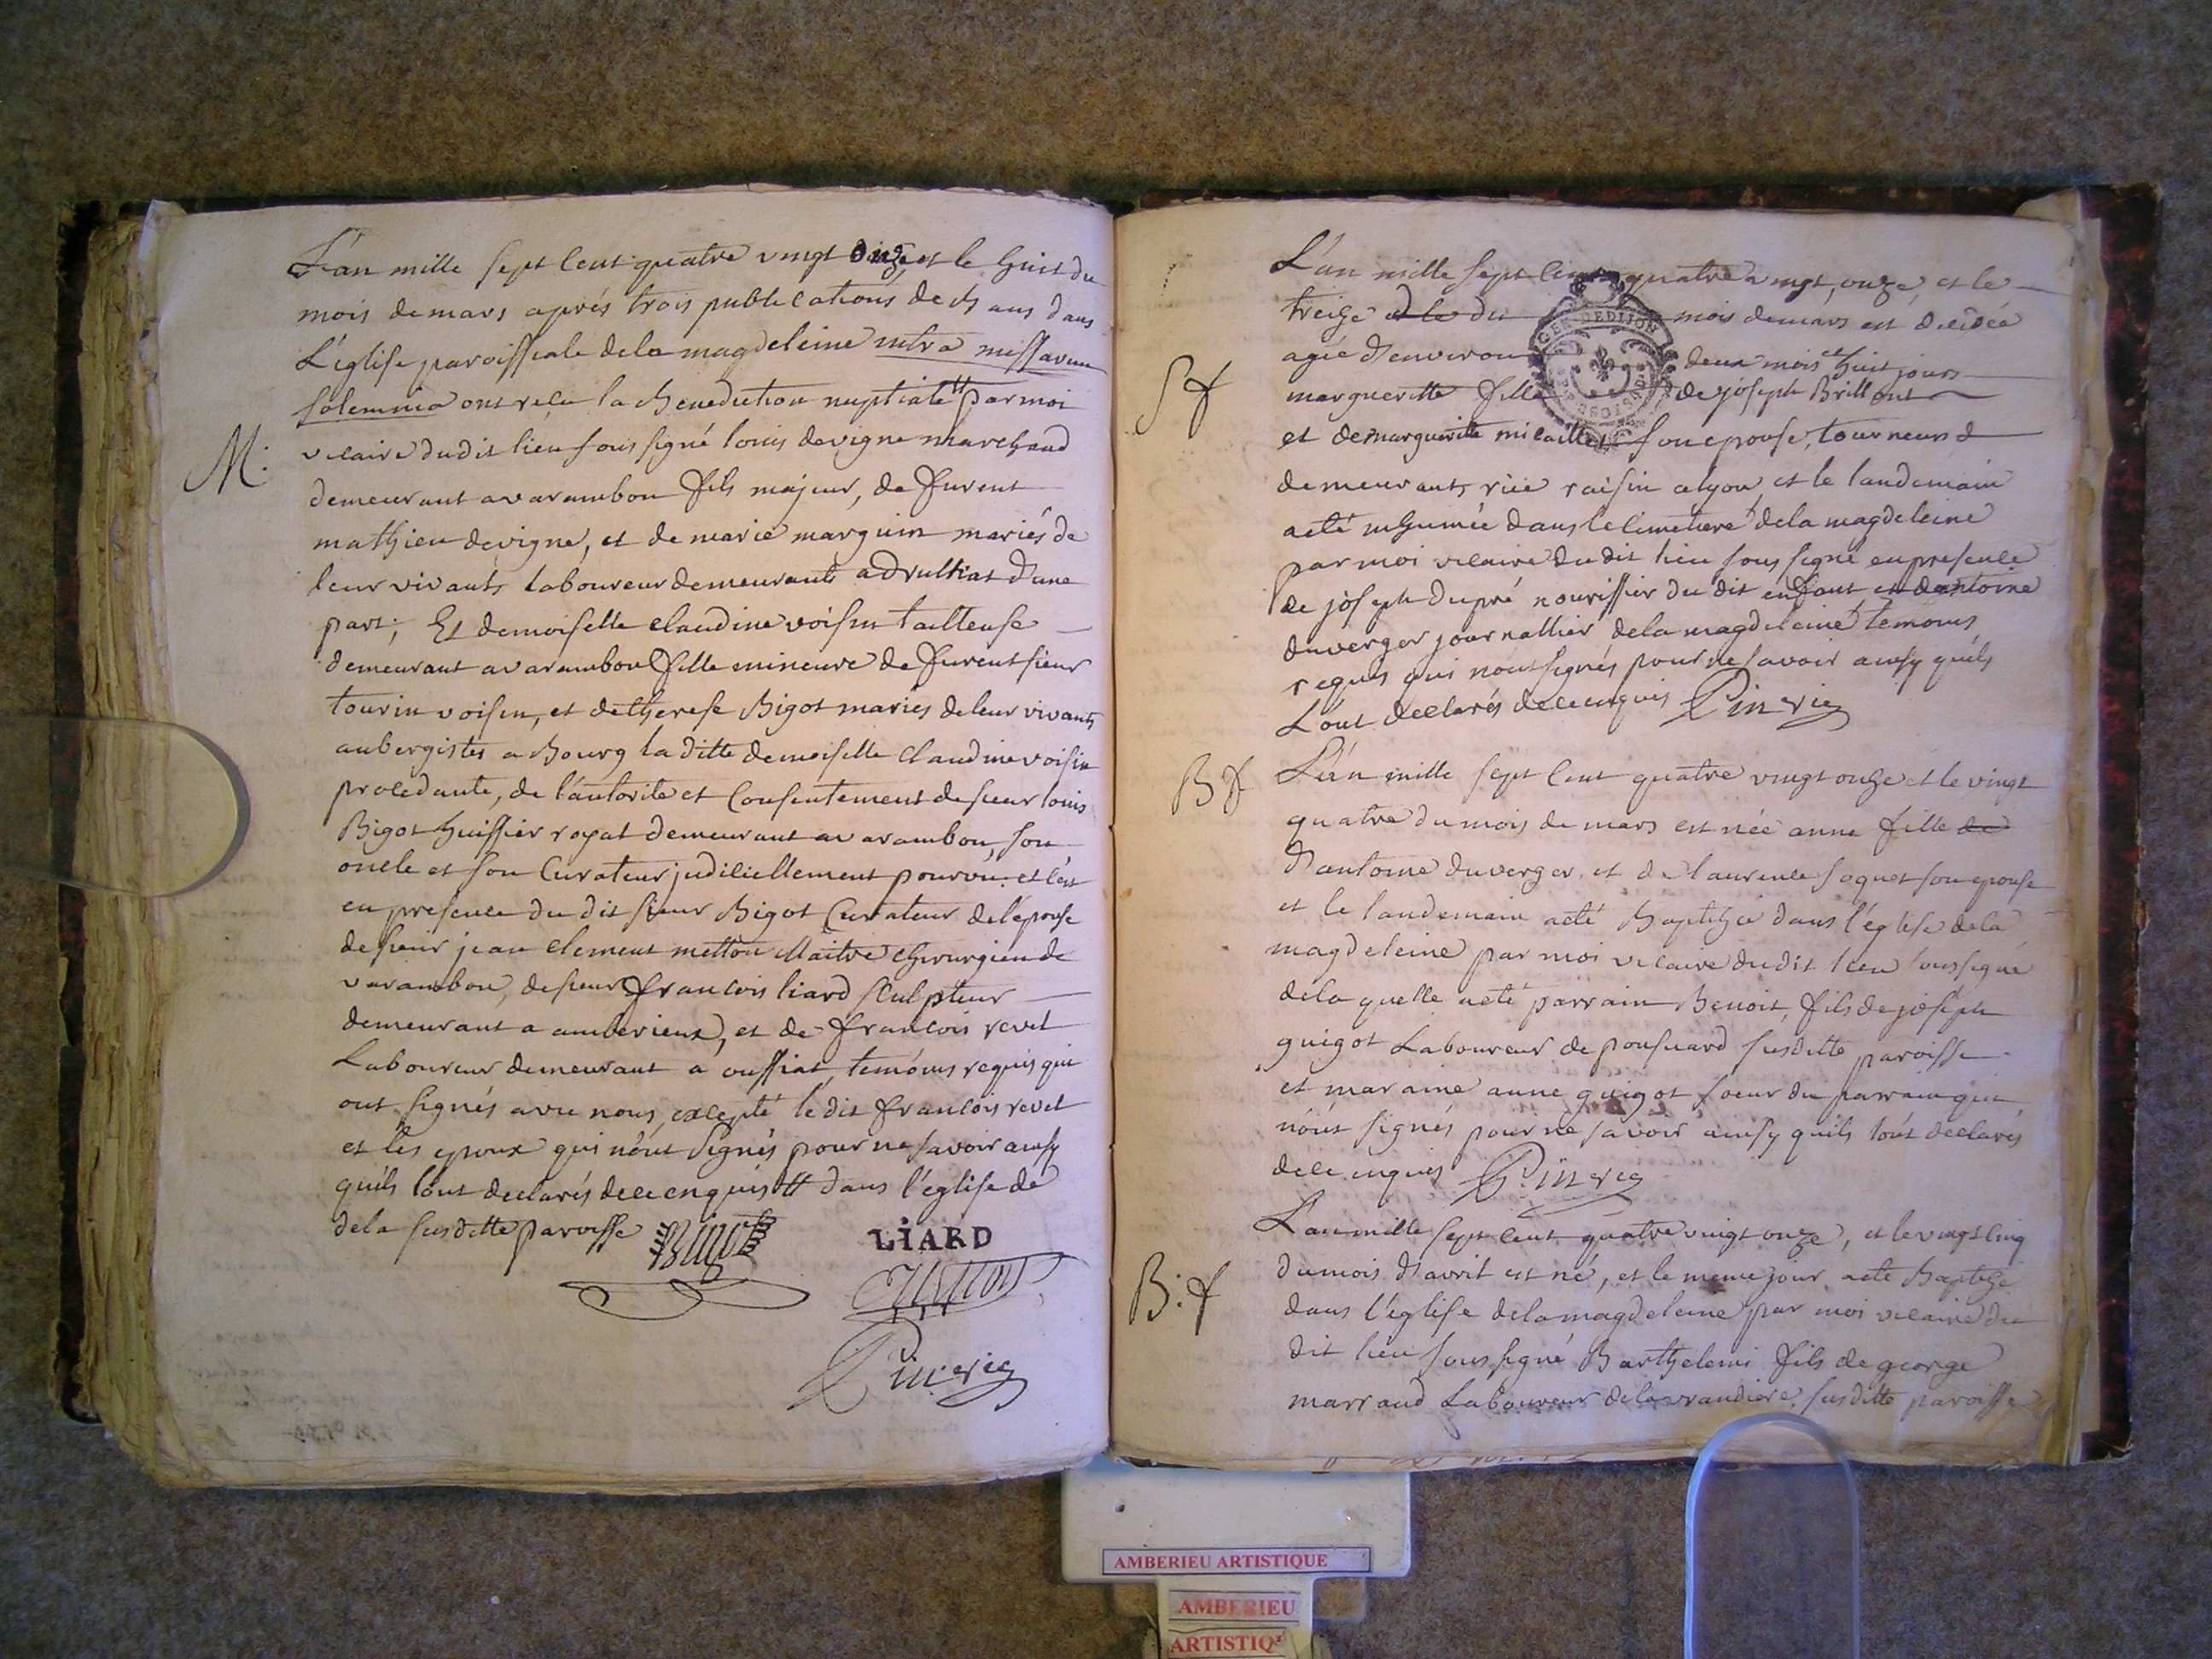 L'an mille sept cent quatre vingt onze, et le huit du
mois de mars aprés trois publications de ch ans dans
L'eglise paroissiale dela magdeleine intra missarum
solemnia ont reçu la Benediction nuptiale # par moi
M:
vicaire dudit lieu sous signé louis devigne marchand
demeurant a varambon fils majeur, de furent
mathieu devigne, et de marie marguin mariés de
leur vivants laboureur demeurants a druillat d'une
part; Et demoiselle claudine voisin tailleuse
demeurant a varambon fille mineure de furent sieur
tourin voisin, et de therese Bigot mariés de leur vivants
aubergistes a Bourg la ditte demoiselle claudine voisin
procedante, de l'autorite et Consentement de sieur louis
Bigot huissier royal demeurant a varambon, son
oncle et son Curateur judiciellement pourvu. et c'est
en presence du dit sieur Bigot Curateur de l'épouse
de sieur jean clement metton Maitre chirurgien de
varambon, de sieur francois liard sculpteur
demeurant a amberieux, et de francois revel
Laboureur demeurant a oussiat, temoins requis qui
ont signés avec nous, excepté le dit francois revel
et les epoux qui n'ont signés pour ne savoir ainsy
qu'ils l'ont declarés de ce enquis # dans l'eglise de
dela susditte paroisse Bigot LiARD
Metton
Pinerie
L'an mille sept cent quatre vingt, onze, et le
treize et le du mois de mars est décédée
agée d'environ deux mois et huit jours
S f
marguerite fille de joseph Brillont
et de marguerite micaillet son epouse, tourneurs d
demeurants rüe raisin a lyon, et le landemain
a eté inhumée dans le cimetiere dela magdeleine
par moi vicaire du dit lieu sous signé en presence
de joseph dupré nourissier du dit enfant et dantoine
duverger journallier, dela magdeleine temoins
requis qui n'ont signés pour ne savoir ainsy qu'ils
L'ont declarés de ce enquis Pinerie
B f
L'an mille sept cent quatre vingt onze et le vingt
quatre du mois de mars est née anne fille de
d'antoine duverger, et de laurence soquet son epouse
et le landemain a eté Baptisée dans l'église dela
magdeleine par moi vicaire dudit lieu soussigné
dela quelle a eté parrain Benoit, fils de joseph
guigot Laboureur de ponsuard susditte paroisse
et maraine anne guigot soeur du parrain qui
n'ont signés pour ne savoir ainsy qu'ils l'ont declarés
de ce enquis Pinerie
L'an mille sept cent quatre vingt onze, et le vingt cinq
B: f
du mois d'avril est né, et le meme jour a eté Baptisé
dans l'église dela magdeleine par moi vicaire du
dit lieu sous signé Barthelemi fils de george
marraud Laboureur dela vrandiere, susditte paroisse
AMBERIEU ARTISTIQUE
AMBERIEU
ARTISTIQ